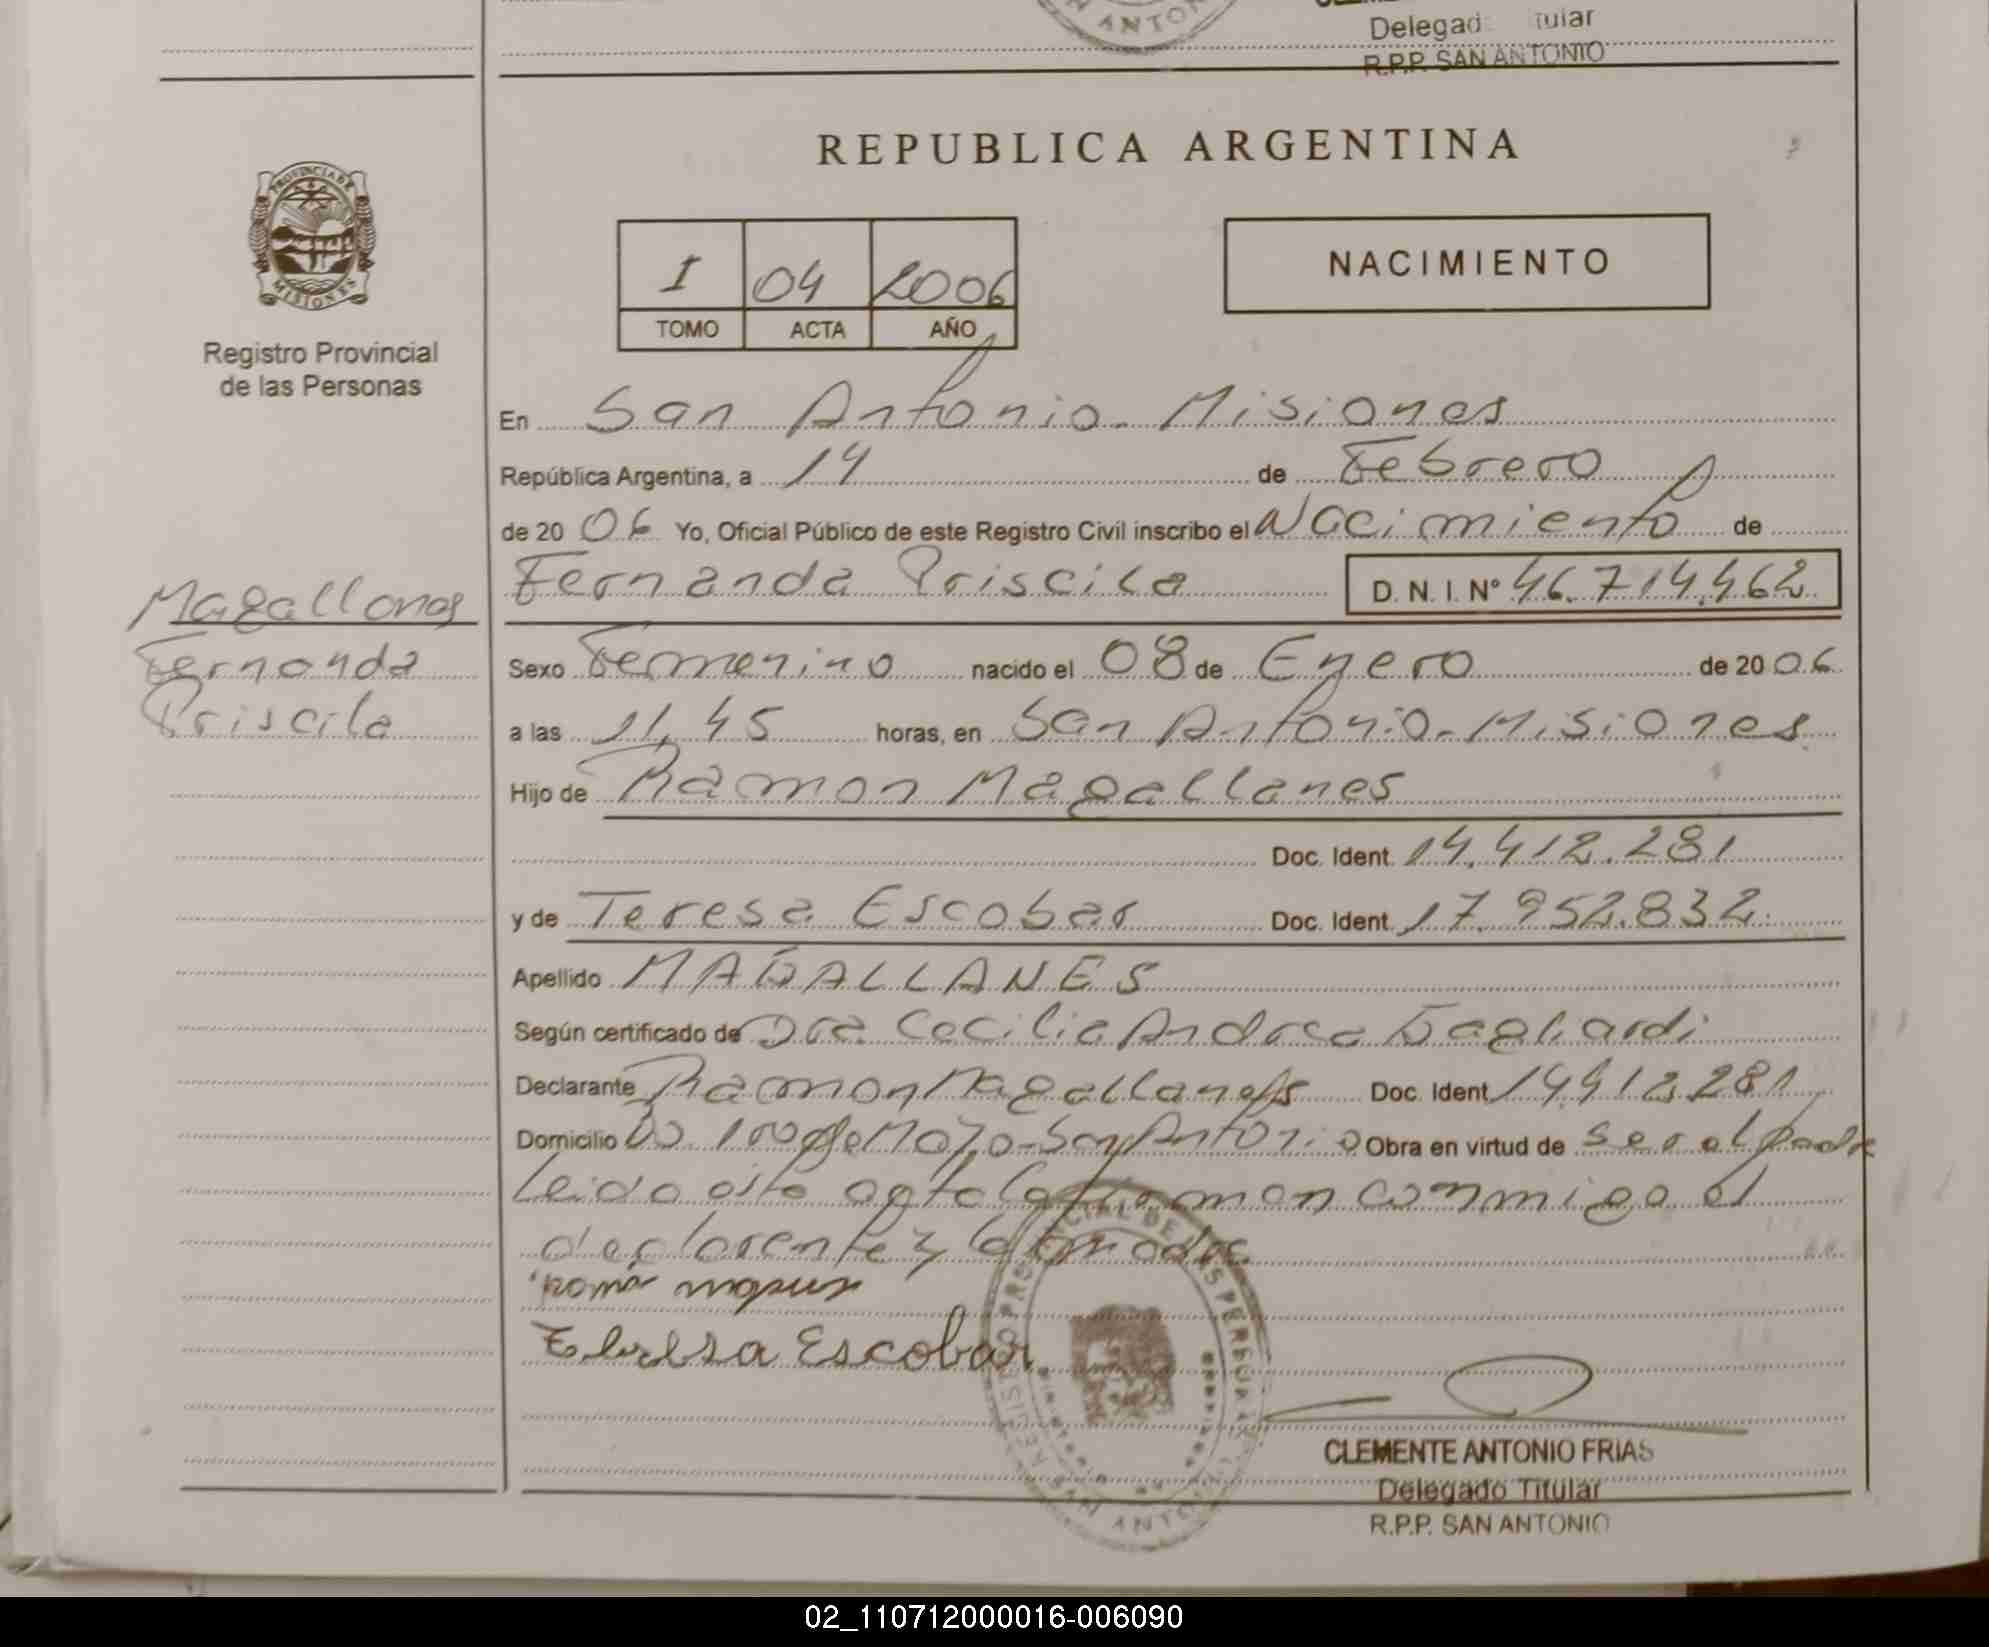 Delegad Tular
R.P.P. SAN ANTONIO
REPUBLICA ARGENTINA
PROVINCIA DE
MISIONES
Registro Provincial
de las Personas
I 04 2006
TOMO ACTA AÑO
NACIMIENTO
En San Antonio - Misiones
República Argentina, a 14 de Febrero
de 20 06 Yo, Oficial Público de este Registro Civil inscribo el Nacimiento de
Fernanda Priscila D. N. I. Nº 46.714.462
Magallanes
Fernanda
Priscila
Sexo Femenino nacido el 08 de Enero de 20 06
a las 11,45 horas, en San Antonio - Misiones
Hijo de Ramon Magallanes
Doc. Ident. 14.412.281
y de Teresa Escobar Doc. Ident. 17.952.832
Apellido MAGALLANES
Según certificado de Dra Cecilia Andrea Gagliardi
Declarante Ramon Magallanes Doc. Ident. 14412281
Domicilio Bo. 1ro de Mayo - San Antonio Obra en virtud de ser el padre
Leida esta acta la firman conmigo el
declarente y la madre
Escobar
CLEMENTE ANTONIO FRIAS
Delegado Titular
R.P.P. SAN ANTONIO
02_110712000016-006090